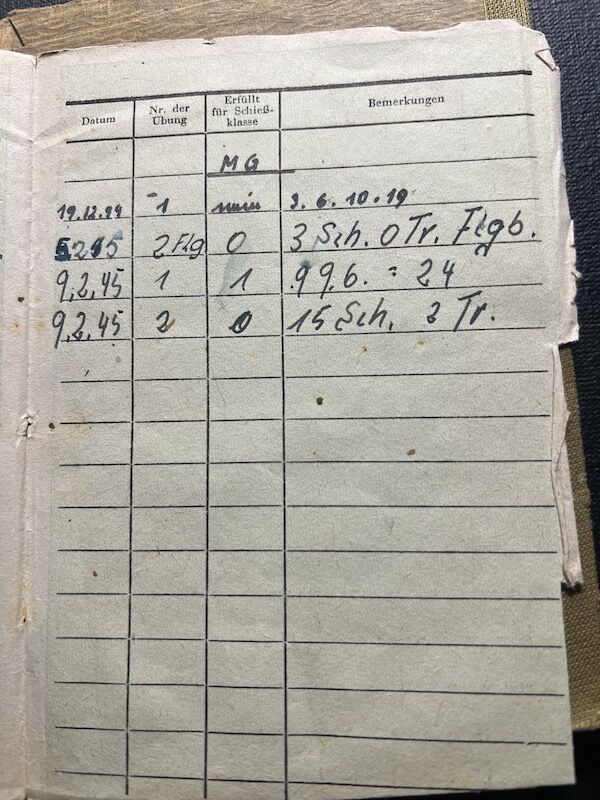 Datum Nr. der Übung Erfüllt für Schieß-klasse Bemerkungen
MG
19.12.44 1 nein 9. 6. 10. 19
5.2.45 2 Flg 0 3 Sch. 0 Tr. Flgb.
9.2.45 1 1 9 9 6. = 24
9.2.45 2 0 15 Sch. 2 Tr.